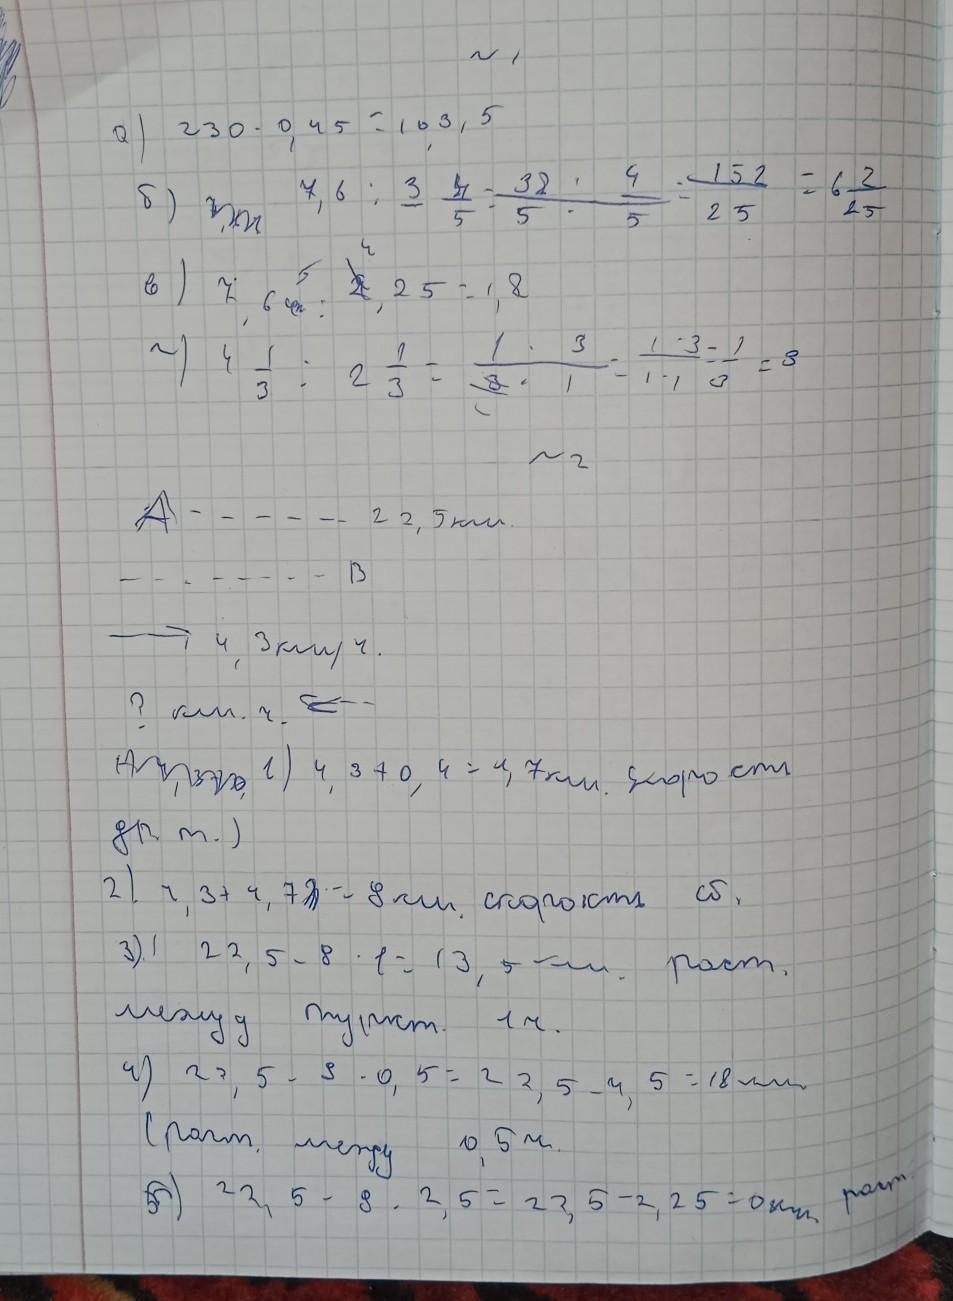 ~ 1
а) 230 · 0,45 = 103,5
б) 7,6 : 3 4/5 = 38/5 · 4/5 = 152/25 = 6 2/25
в) 7,65 : 4,25 = 1,8
г) 4 1/3 : 2 1/3 = 1 · 3 / 3 · 1 = 1 · 3 / 1 · 1 = 1/3 = 3
~ 2
А - - - - - - 22,5 км.
- - - - - - - - В
→ 4,3 км/ч.
? км. ч. ←--
1) 4,3 + 0,4 = 4,7 км. скорость
др. п.)
2) 4,3 + 4,7 = 9 км. скорость сб.
3) 22,5 - 8 · 1 = 13,5 км. раст.
между пункт. 1 ч.
4) 22,5 - 9 · 0,5 = 22,5 - 4,5 = 18 км
(раст. между 0,5 ч.
5) 22,5 - 8 · 2,5 = 22,5 - 2,25 = 0 км раст.